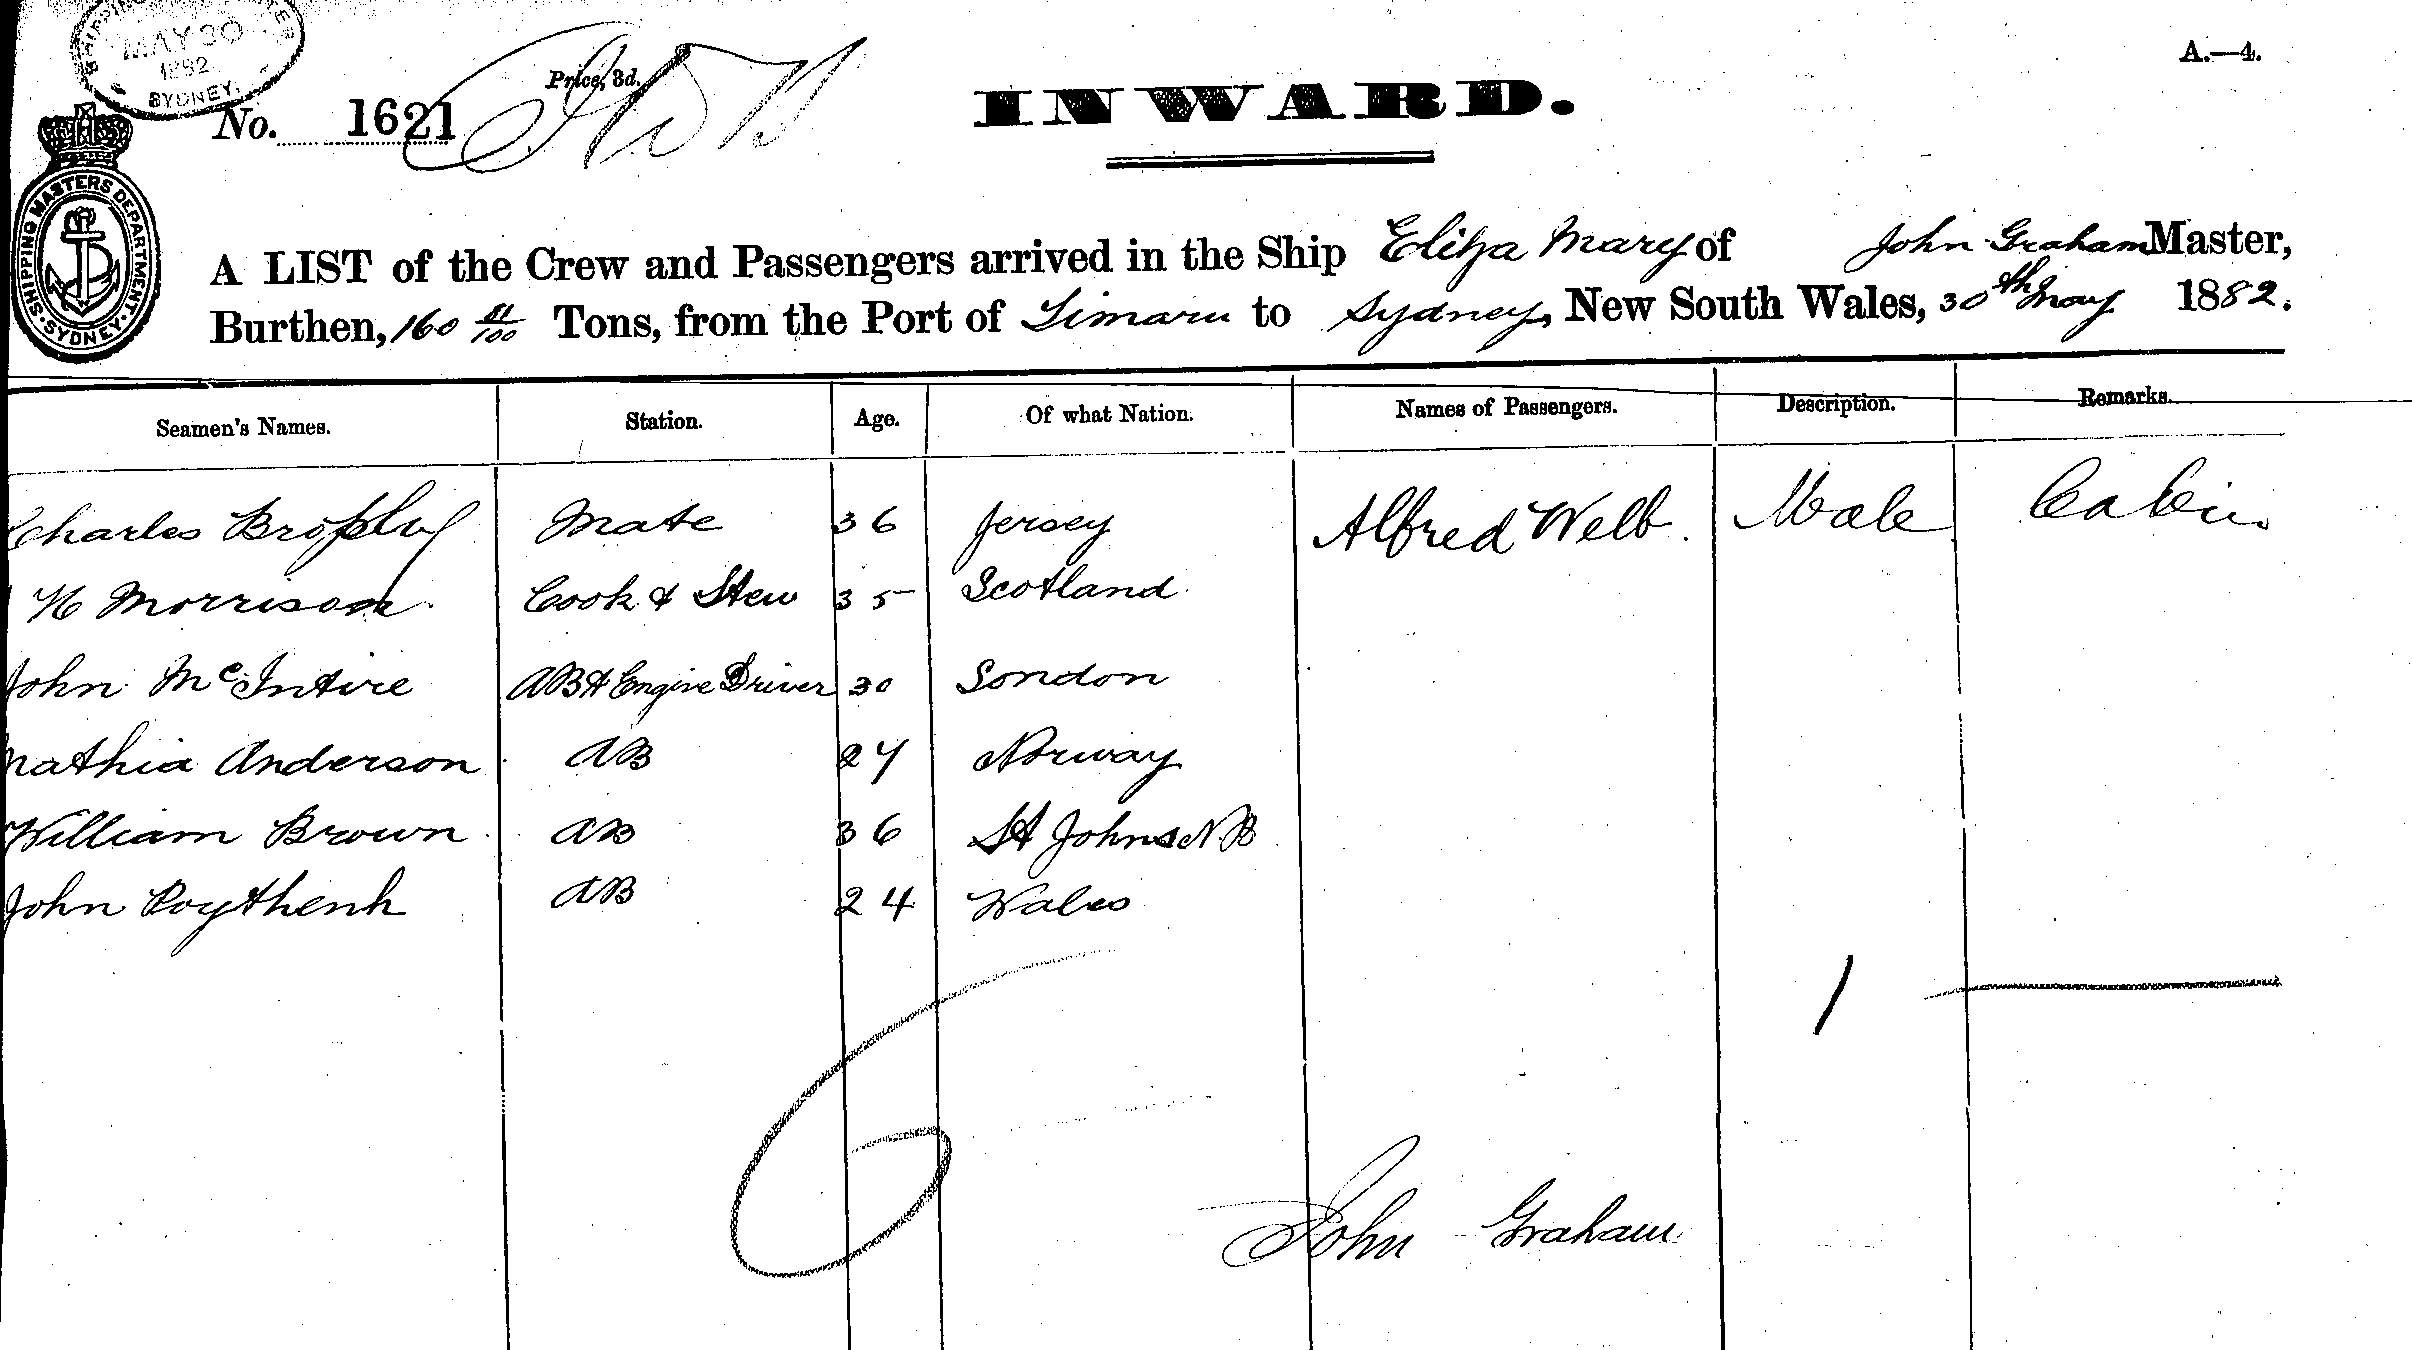 MAY 30
1882
SYDNEY.
Price, 3d.
A.—4.
No. 1621
INWARD.
SHIPPING MASTERS DEPARTMENT. SYDNEY.
A LIST of the Crew and Passengers arrived in the Ship Eliza Mary of John Graham Master,
Burthen, 160 51/100 Tons, from the Port of Timaru to Sydney, New South Wales, 30th May 1882.
Seamen's Names. Station. Age. Of what Nation. Names of Passengers. Description. Remarks.
Charles Brophy Mate 36 Jersey Alfred Webb. Male Cabin.
H Morrison. Cook & Stew 35 Scotland
John McIntire AB & Engine Driver 30 London
Mathia Anderson AB 24 Norway
William Brown AB 36 St Johns N.B
John AB 24 Wales
6
1
John Graham